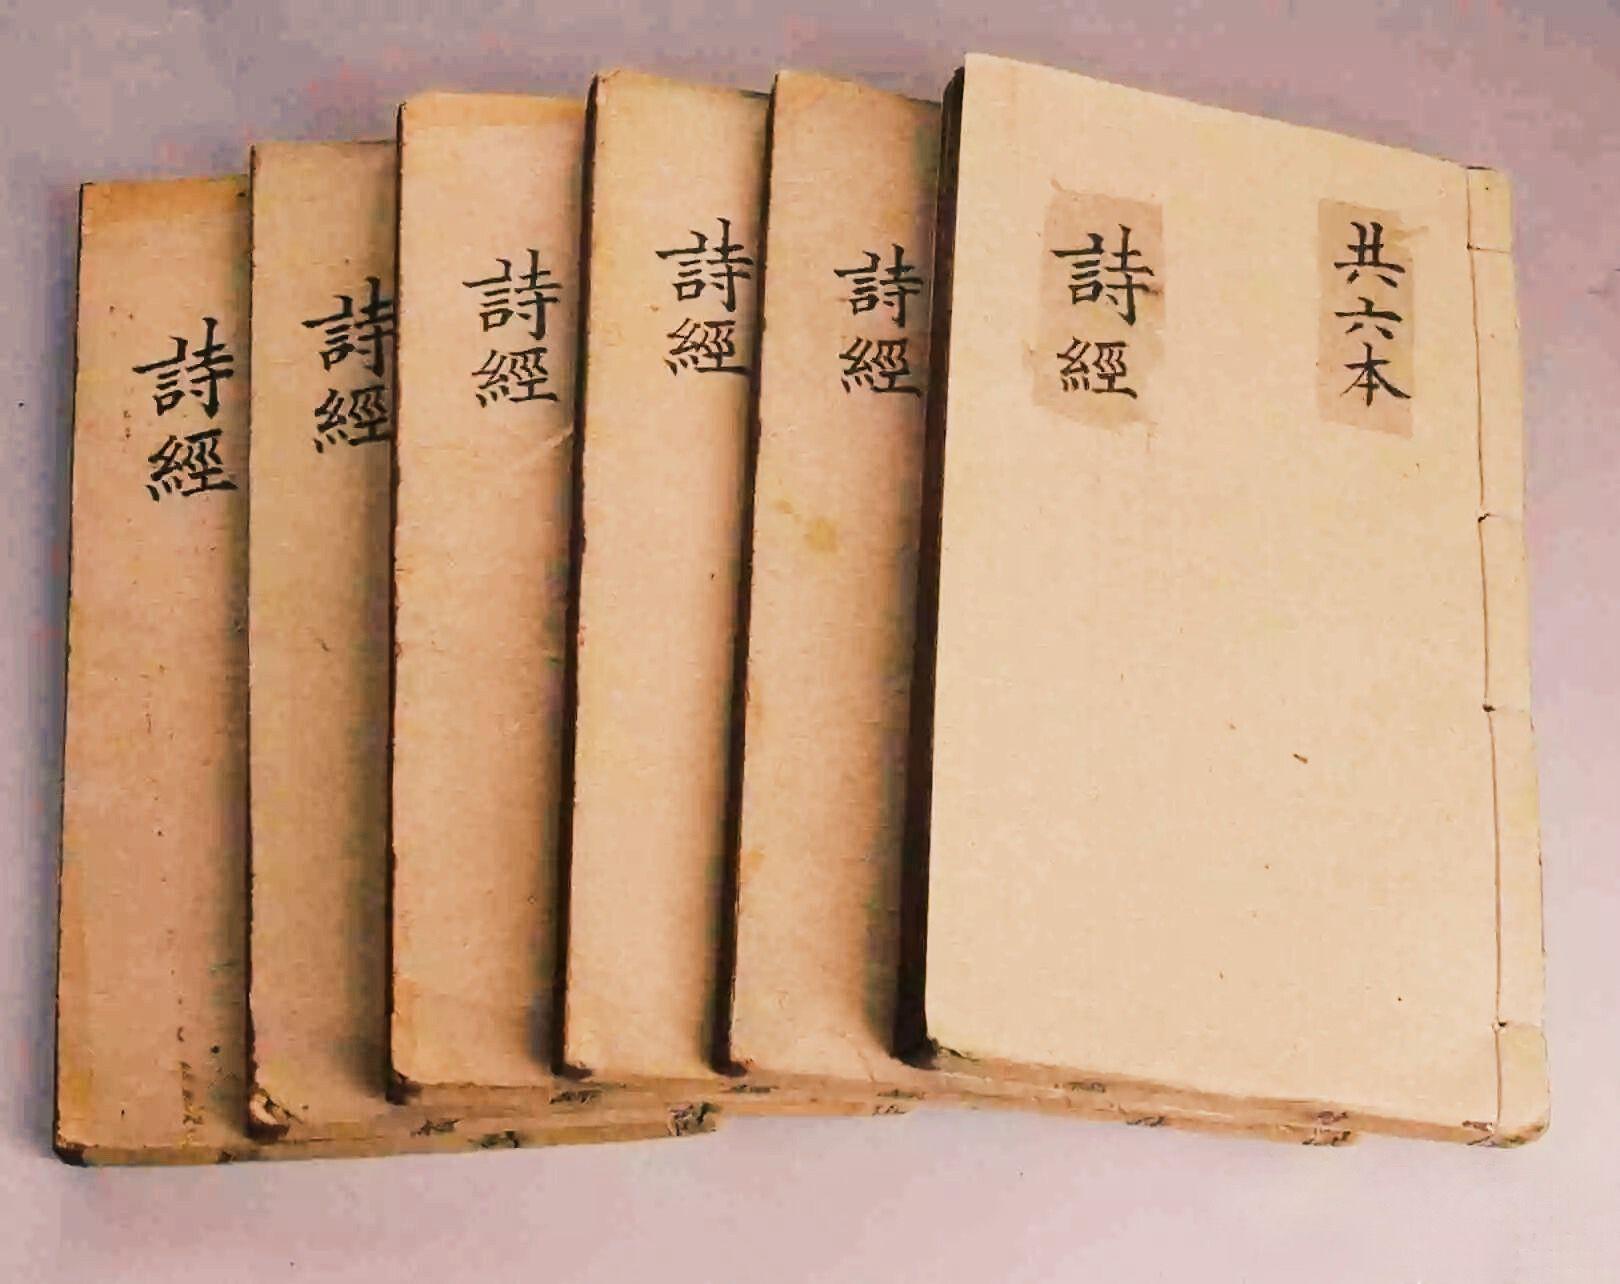 共六本
詩經
詩經
詩經
詩經
詩經
詩經